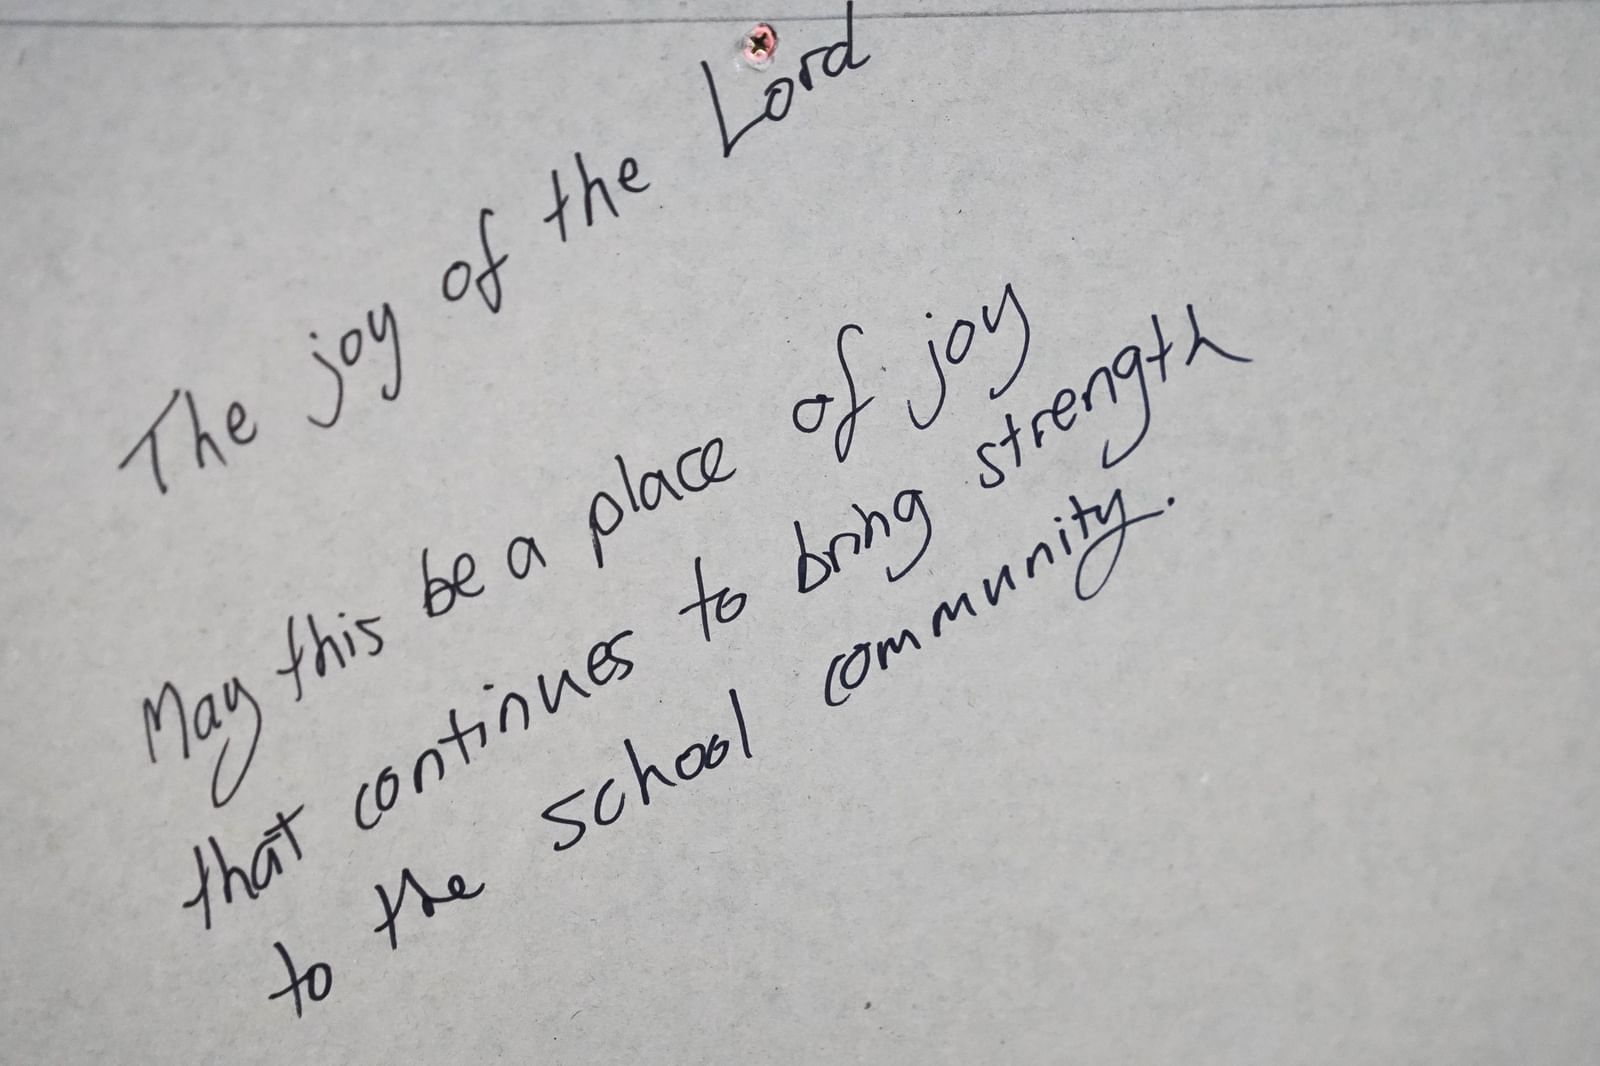 The joy of the Lord
May this be a place of joy
that continues to bring strength
to the school community.